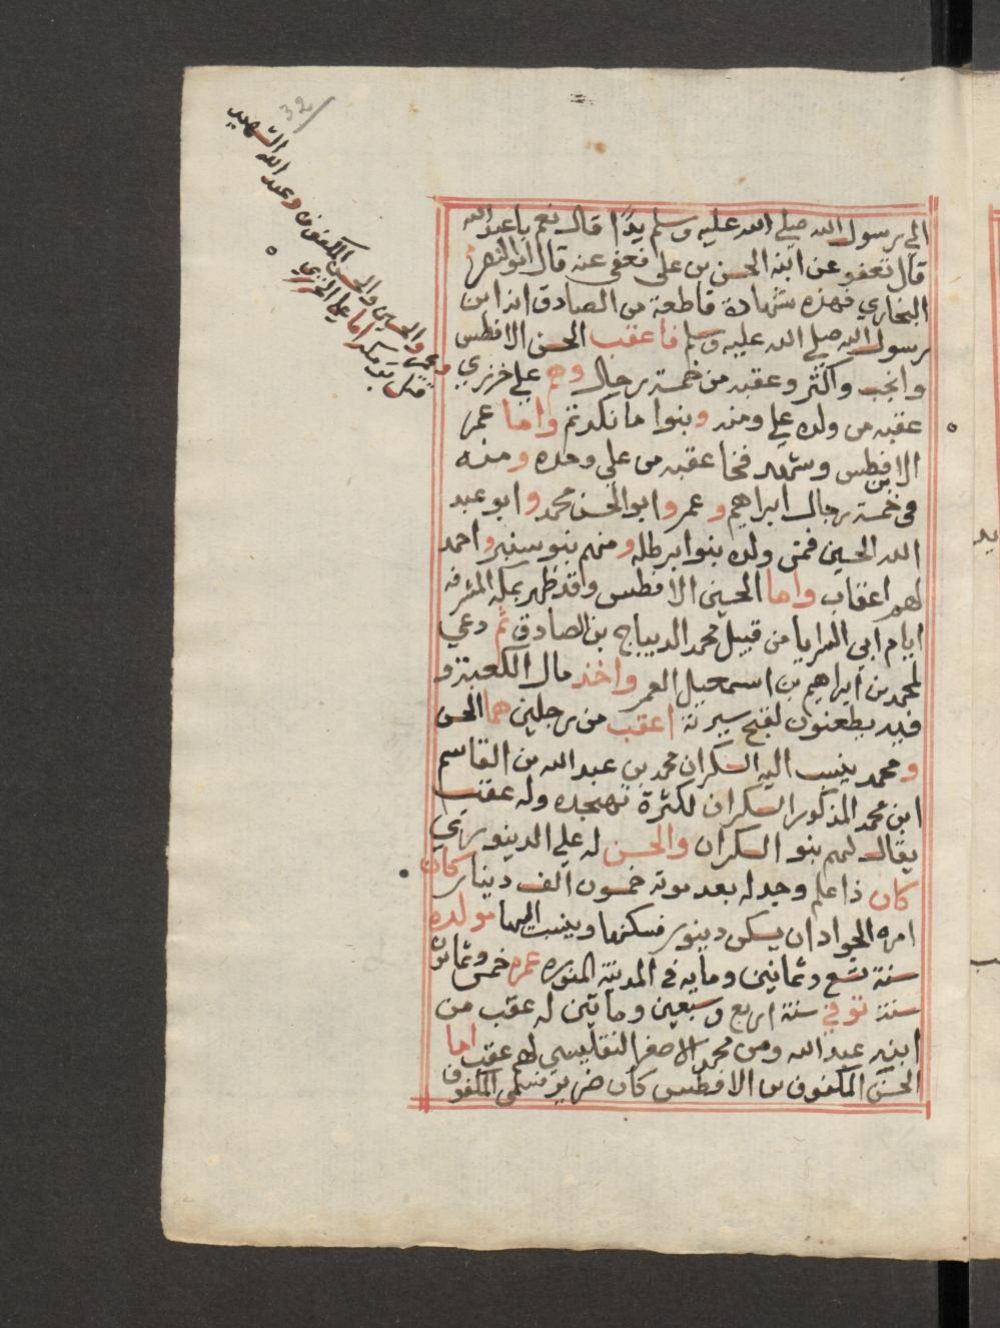 32
وعمر والحسين والحسن المكفوف وعبد الله الشهيد
قتل برمكه اما علي الخزري
الي رسول الله صلي الله عليه وسلم يدًا قال نعم يا عبد الله
قال تعفو عن ابنه الحسن بن علي فعفي عنه قال ابو النصر
البخاري فهذه شهادة قاطعة من الصادق انه ابن
رسول الله صلي الله عليه وسلم فاعقب الحسن الافطس
وانجب واكثر وعقبه من خمسة رجال وهم علي خرزي
عقبه من ولده علي ومنه وبنوا مانكديم واما عمر
الافطس وشهد فخا عقبه من علي وحده ومنه
في خمسة رجال ابراهيم و عمر وابو الحسن محمد وابو عبد
الله الحسين فمن ولده بنوا برطله ومنهم بنو سنبر واحمد
لهم اعقاب واما الحسين الافطس واقد ظهر بمكه المشرفه
ايام ابي السرايا من قبيل محمد الديباج بن الصادق ثم دعي
لمحمد بن ابراهيم بن اسمعيل العمر واخذ مال الكعبة و
فيه يطعنون لقبح سيرتة اعقب من رجلين هما الحسن
ومحمد ينسب اليه السكران محمد بن عبد الله من القاسم
ابن محمد المذكور السكران لكثرة تهجده وله عقب
يقال لهم بنو السكران والحسن له علي الدينوري
كان ذا علم وجد له بعد موته خمسون الف دينار كان
امره الجواد ان يسكن دينور فسكنها وينسب اليها مولده
سنة تسع وثمانين ومايه في المدينة المنوره عمره خمس وثمانون
سنة توفي سنة اربع وسبعين ومايتين له عقب من
ابنه عبد الله ومن محمد الاصغر التفليسي لهم عقب اما
الحسن المكفوف بن الافطس كان ضريو فسمي المكفوف